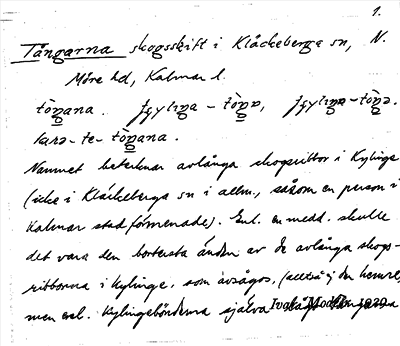 1.
Tångarna skogsskift i Kläckeberga sn, N.
Möre hd, Kalmar l.
tòŋana. – tòŋa, – tòŋa.
kara - te - tòŋana.
Namnet betecknar avlånga skogsribbor i Kylinge
(icke i Kläckeberga sn i allm., såsom en person i
Kalmar stad förmenade). Enl. en medd. skulle
det vara den bortersta änden av de avlånga skogs-
ribborna i Kylinge, som avsågos, (alltså ej den hemre),
men enl. Kylingebönderna själva
Ivar Modéer 1929